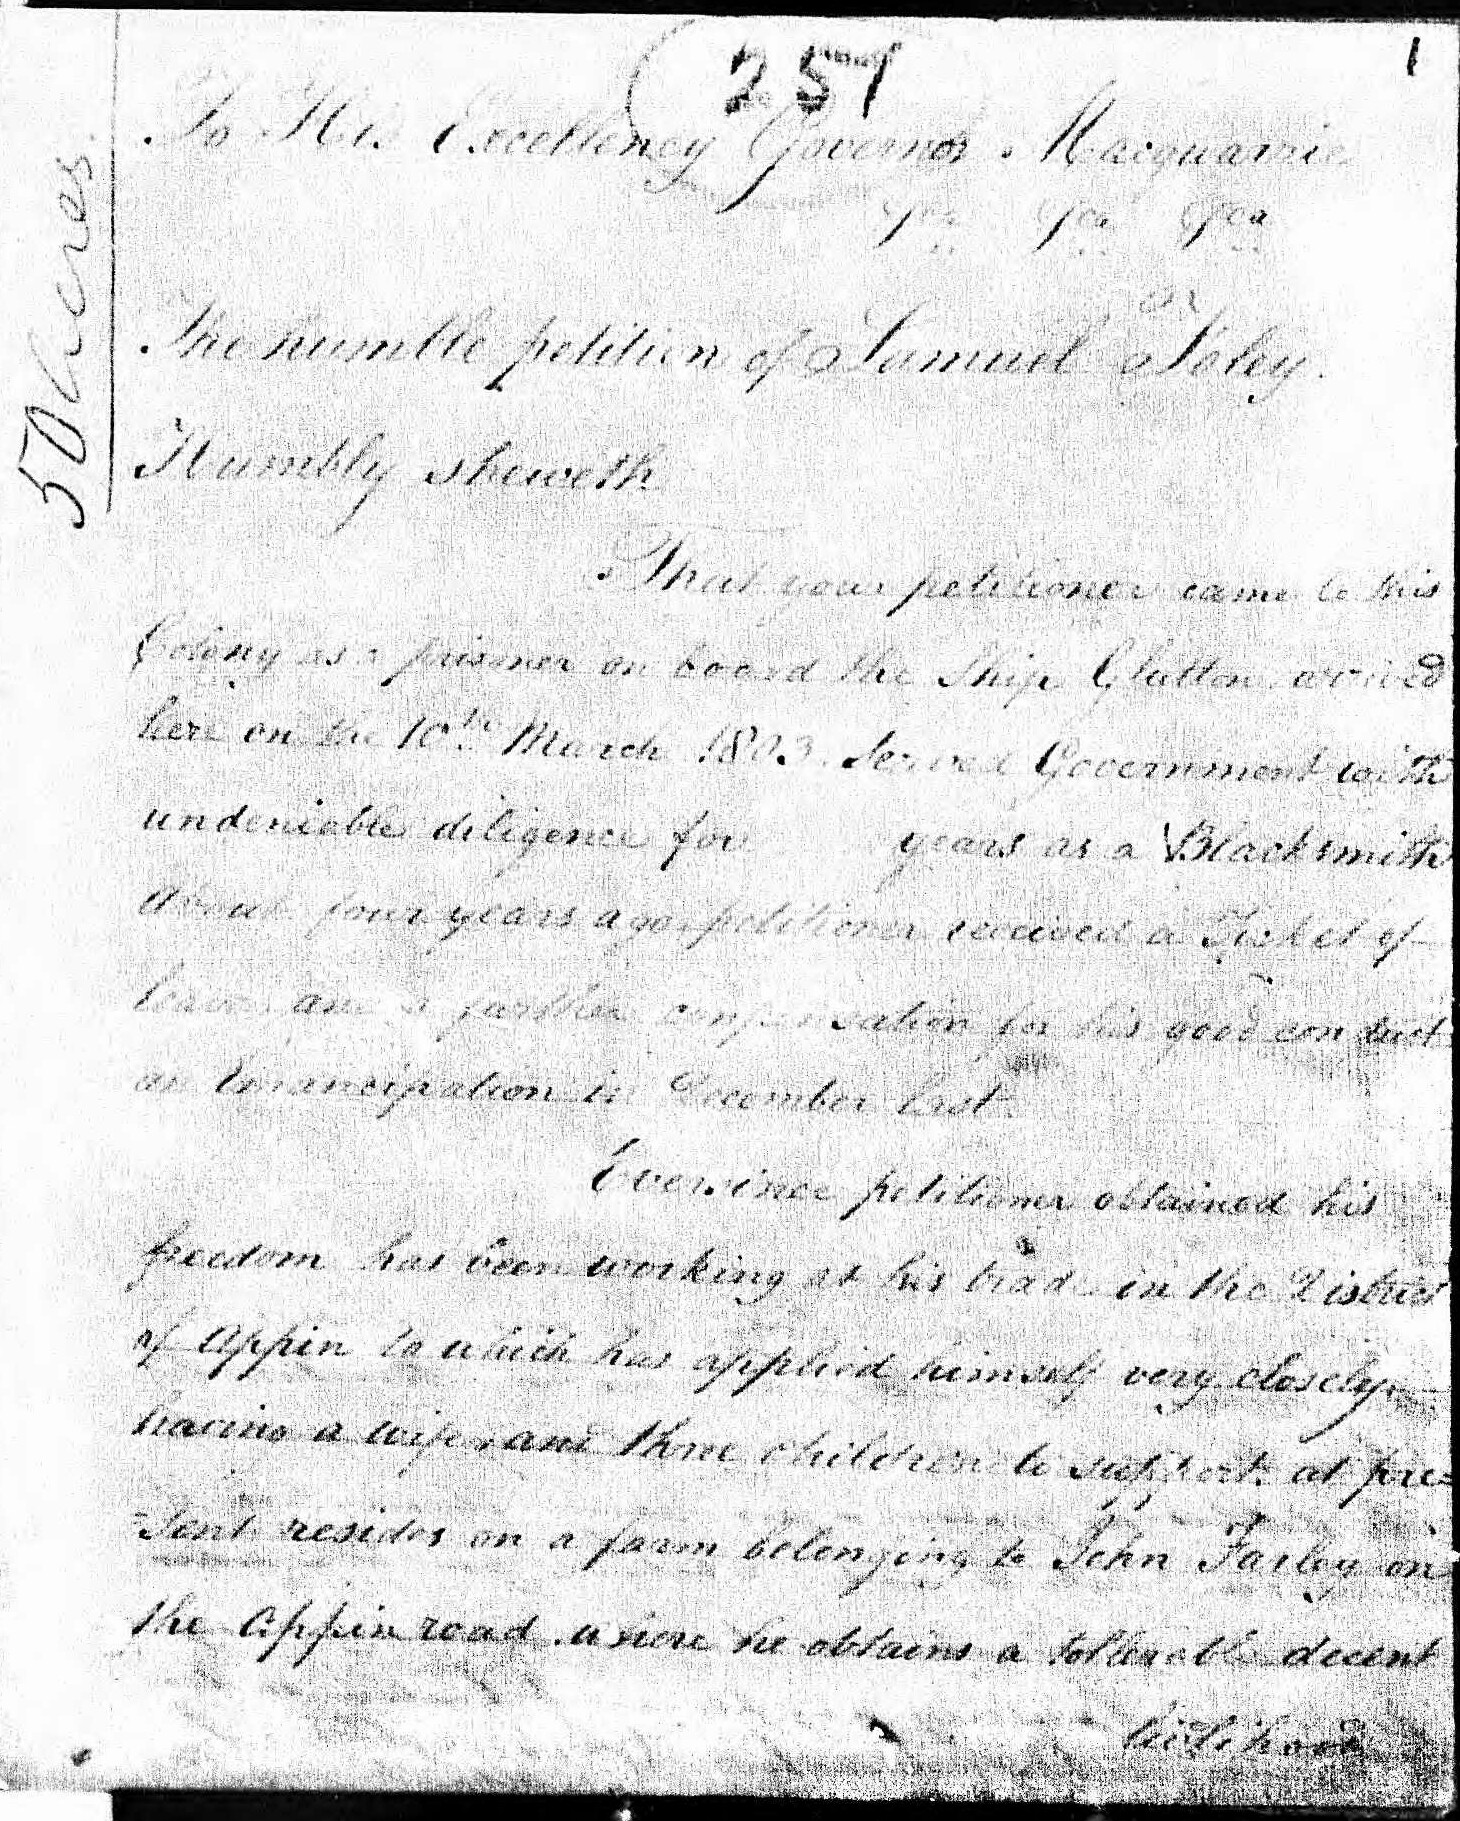 257
1
50 Acres.
To His Excellency Governor Macquarrie
&ca &ca &ca
The humble petition of Samuel Foley.
Humbly sheweth
That your petitioner came to this
Colony as a prisoner on board the Ship Glatton arrived
here on the 10th March 1803. Served Government with
undeniable diligence for years as a Blacksmith
about four years ago petitioner received a Ticket of
leave and a further compensation for his good conduct
an Emancipation in December last.
Ever since petitioner obtained his
freedom has been working at his trade in the District
of Appin to which has applied himself very closely
having a wife and three children to support at pre=
=sent resides on a farm belonging to John Farley on
the Appin road where he obtains a tollerable decent
livlihood